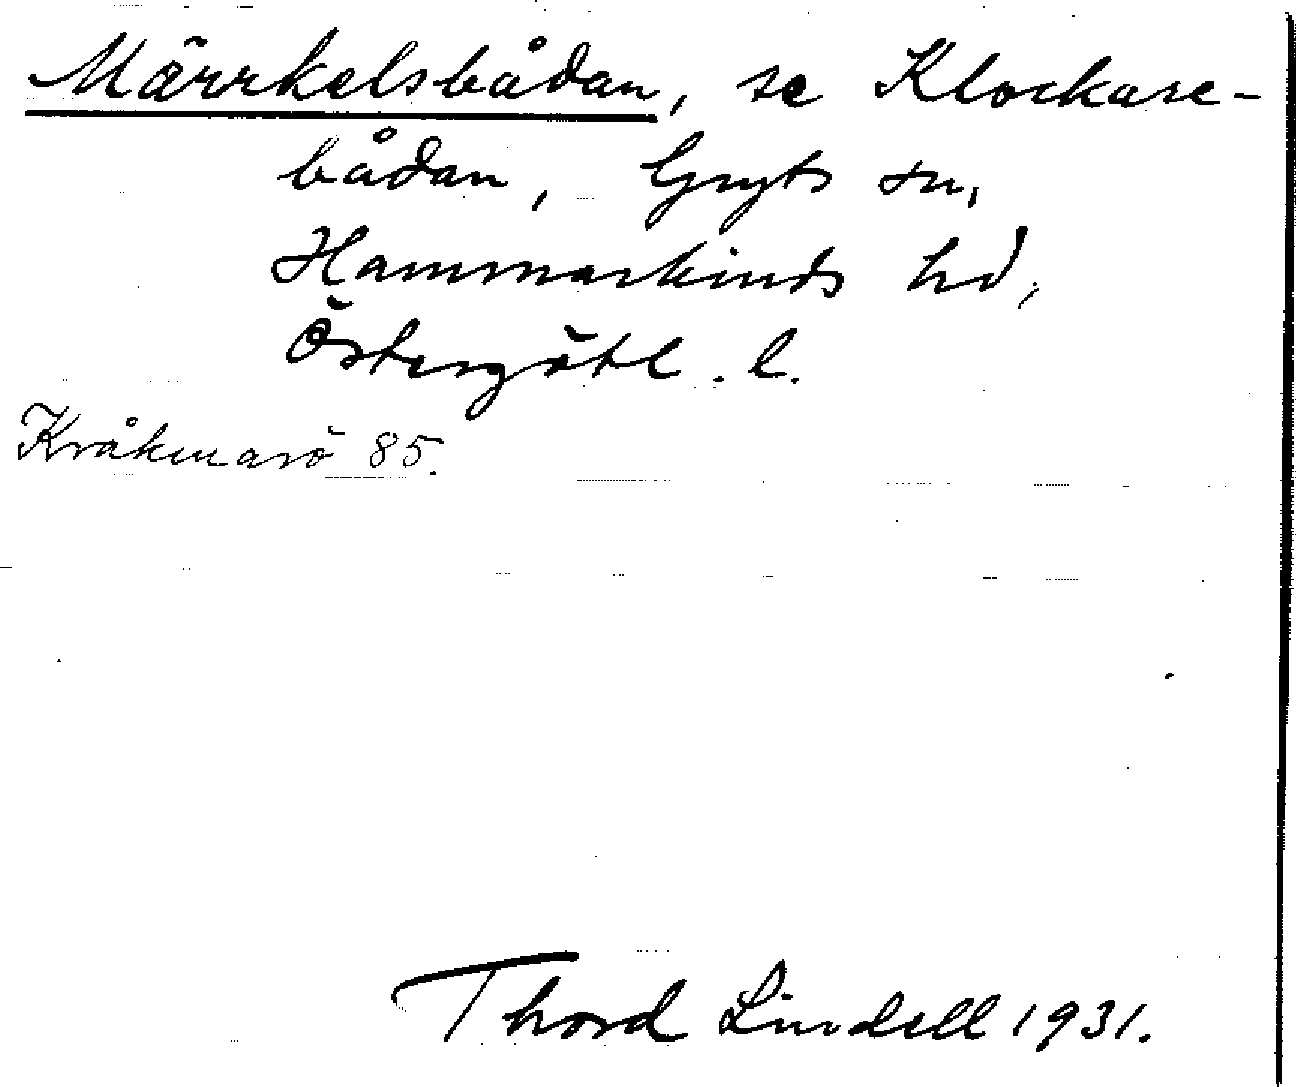 Märrkelsbådan, se Klockare-
bådan, Gryts sn,
Hammarkinds hd,
Östergötl. l.
Kråkmarö 85.
Thord Lindell 1931.